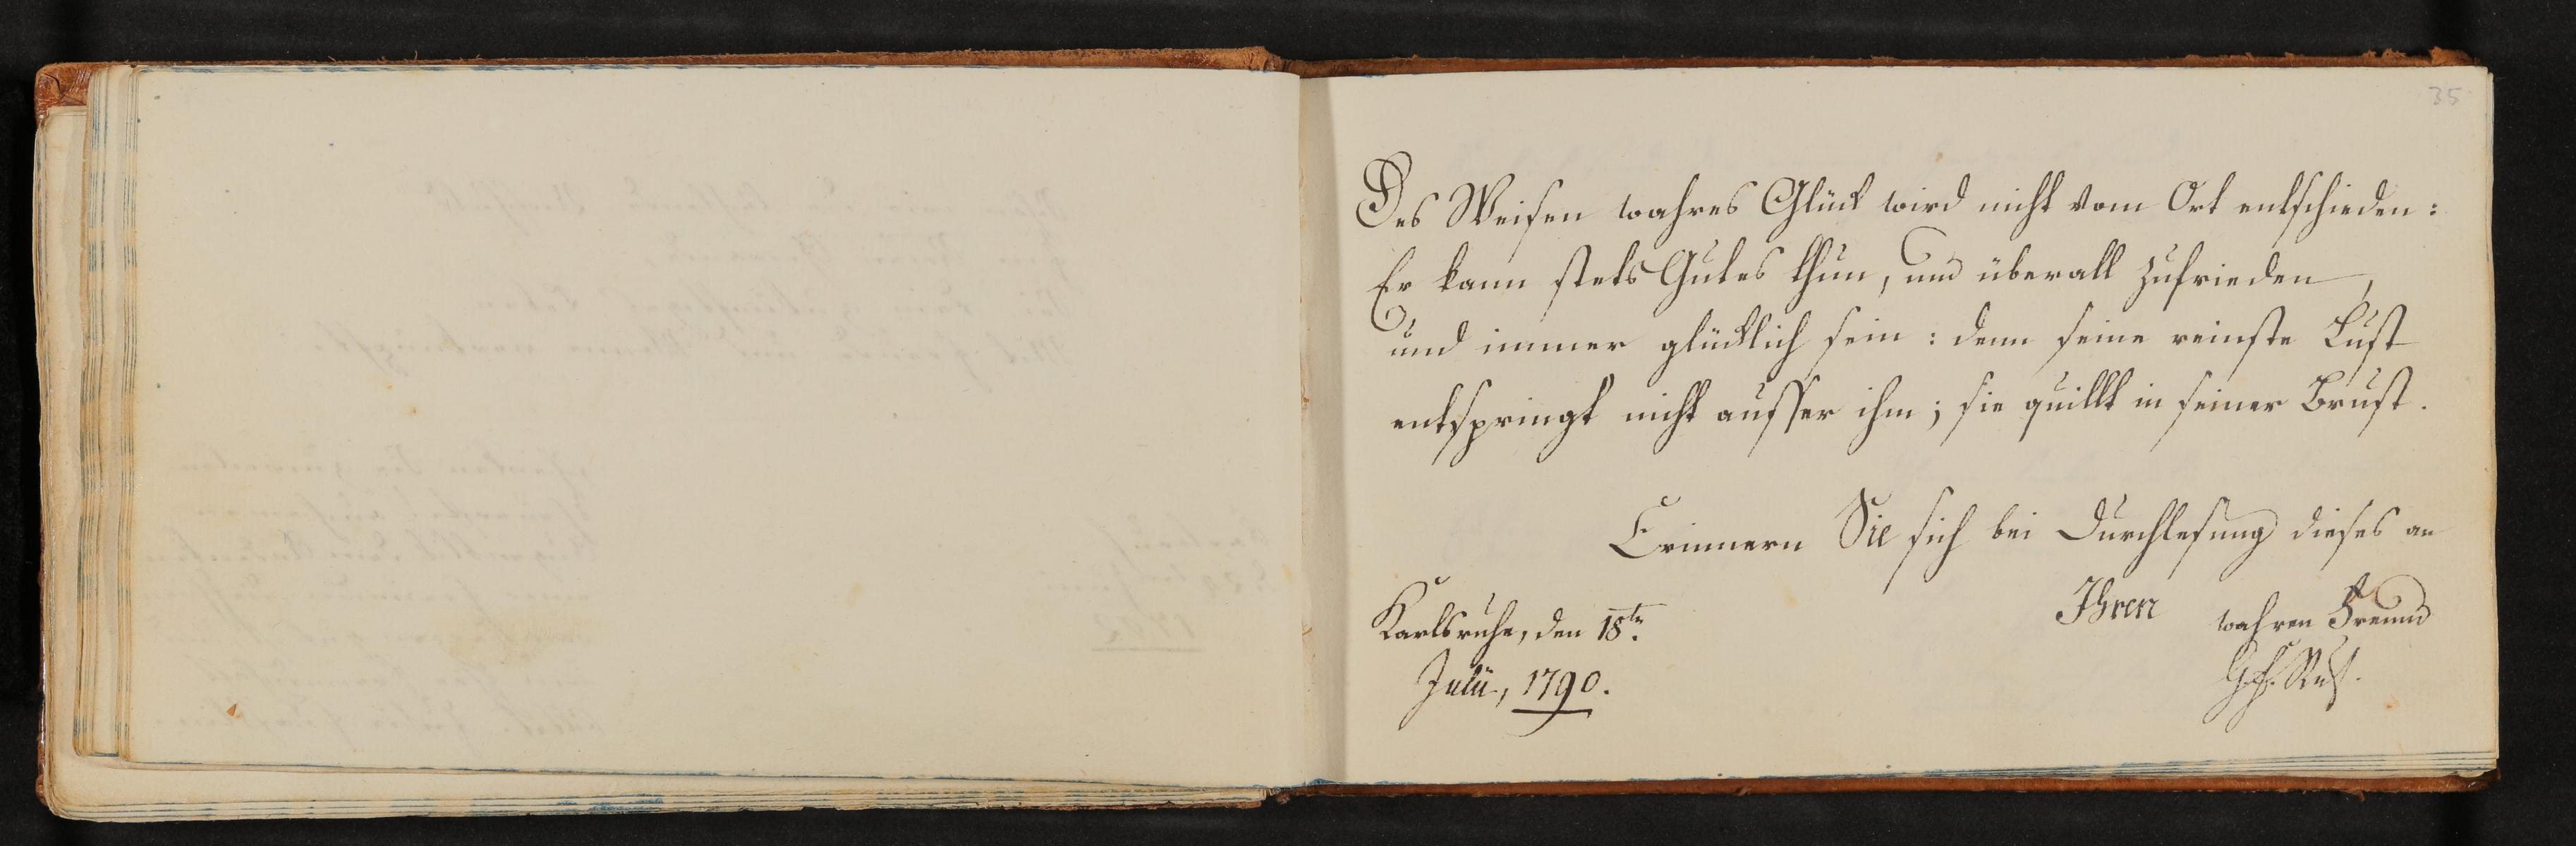 35
Des Weisen wahres Glück wird nicht vom Ort entschieden:
Er kann stets Gutes thun, und überall zufrieden,
und immer glücklich sein: denn seine reinste Lust
entspringt nicht ausser ihm; sie quillt in seiner Brust.
Erinnern Sie sich bei Durchlesung dieses an
Ihren wahren Freund
Karlsruhe, den 18te.
Julii, 1790.